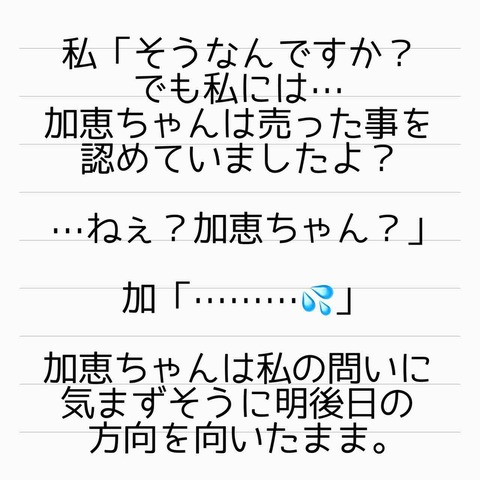 私「そうなんですか？
でも私には…
加恵ちゃんは売った事を
認めていましたよ？
…ねぇ？加恵ちゃん？」
加「………💦」
加恵ちゃんは私の問いに
気まずそうに明後日の
方向を向いたまま。